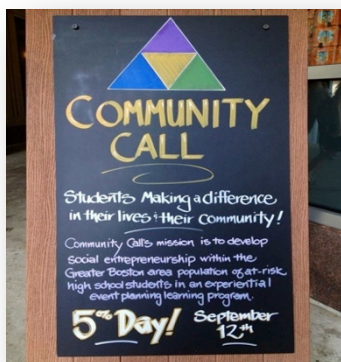 COMMUNITY
CALL
Students Making a difference
in their lives & their community!
Community Call's mission is to develop
Social entrepreneurship within the
Greater Boston area population of at-risk
high school students in an experiential
event planning learning program.
5% Day! September
12th